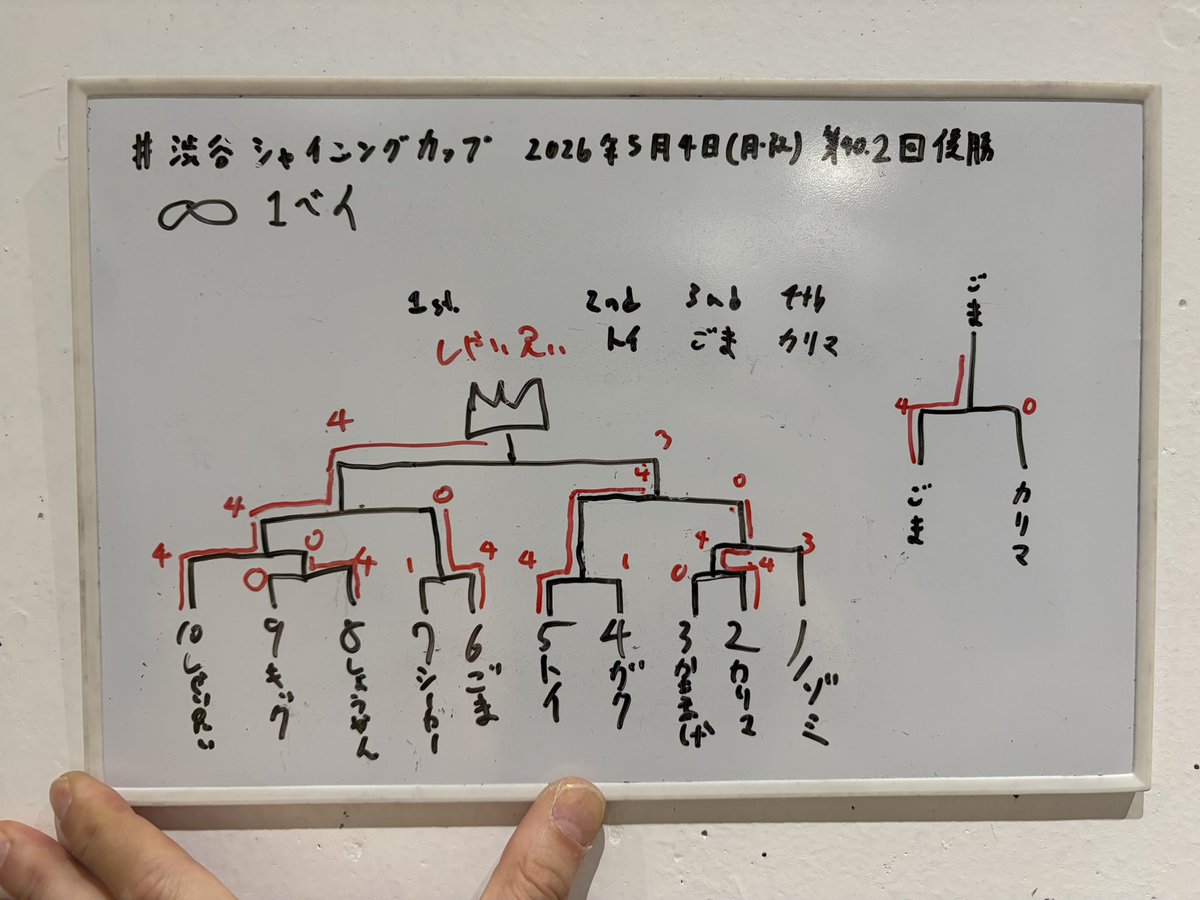 #渋谷シャイニングカップ 2026年5月4日(月・祝) 第90.2回優勝
∞ 1ベイ
1st. 2nd 3nd 4th
しゃいえい トイ ごま カリマ
ごま
4 0
ごま カリマ
4 3
4 0 4 0
4 0 4 1 4 4 1 4 3
0 0 4
10 9 8 7 6 5 4 3 2 1
しゃいえい キング しょうゆん ごま トイ ガク カリマ ノゾミ